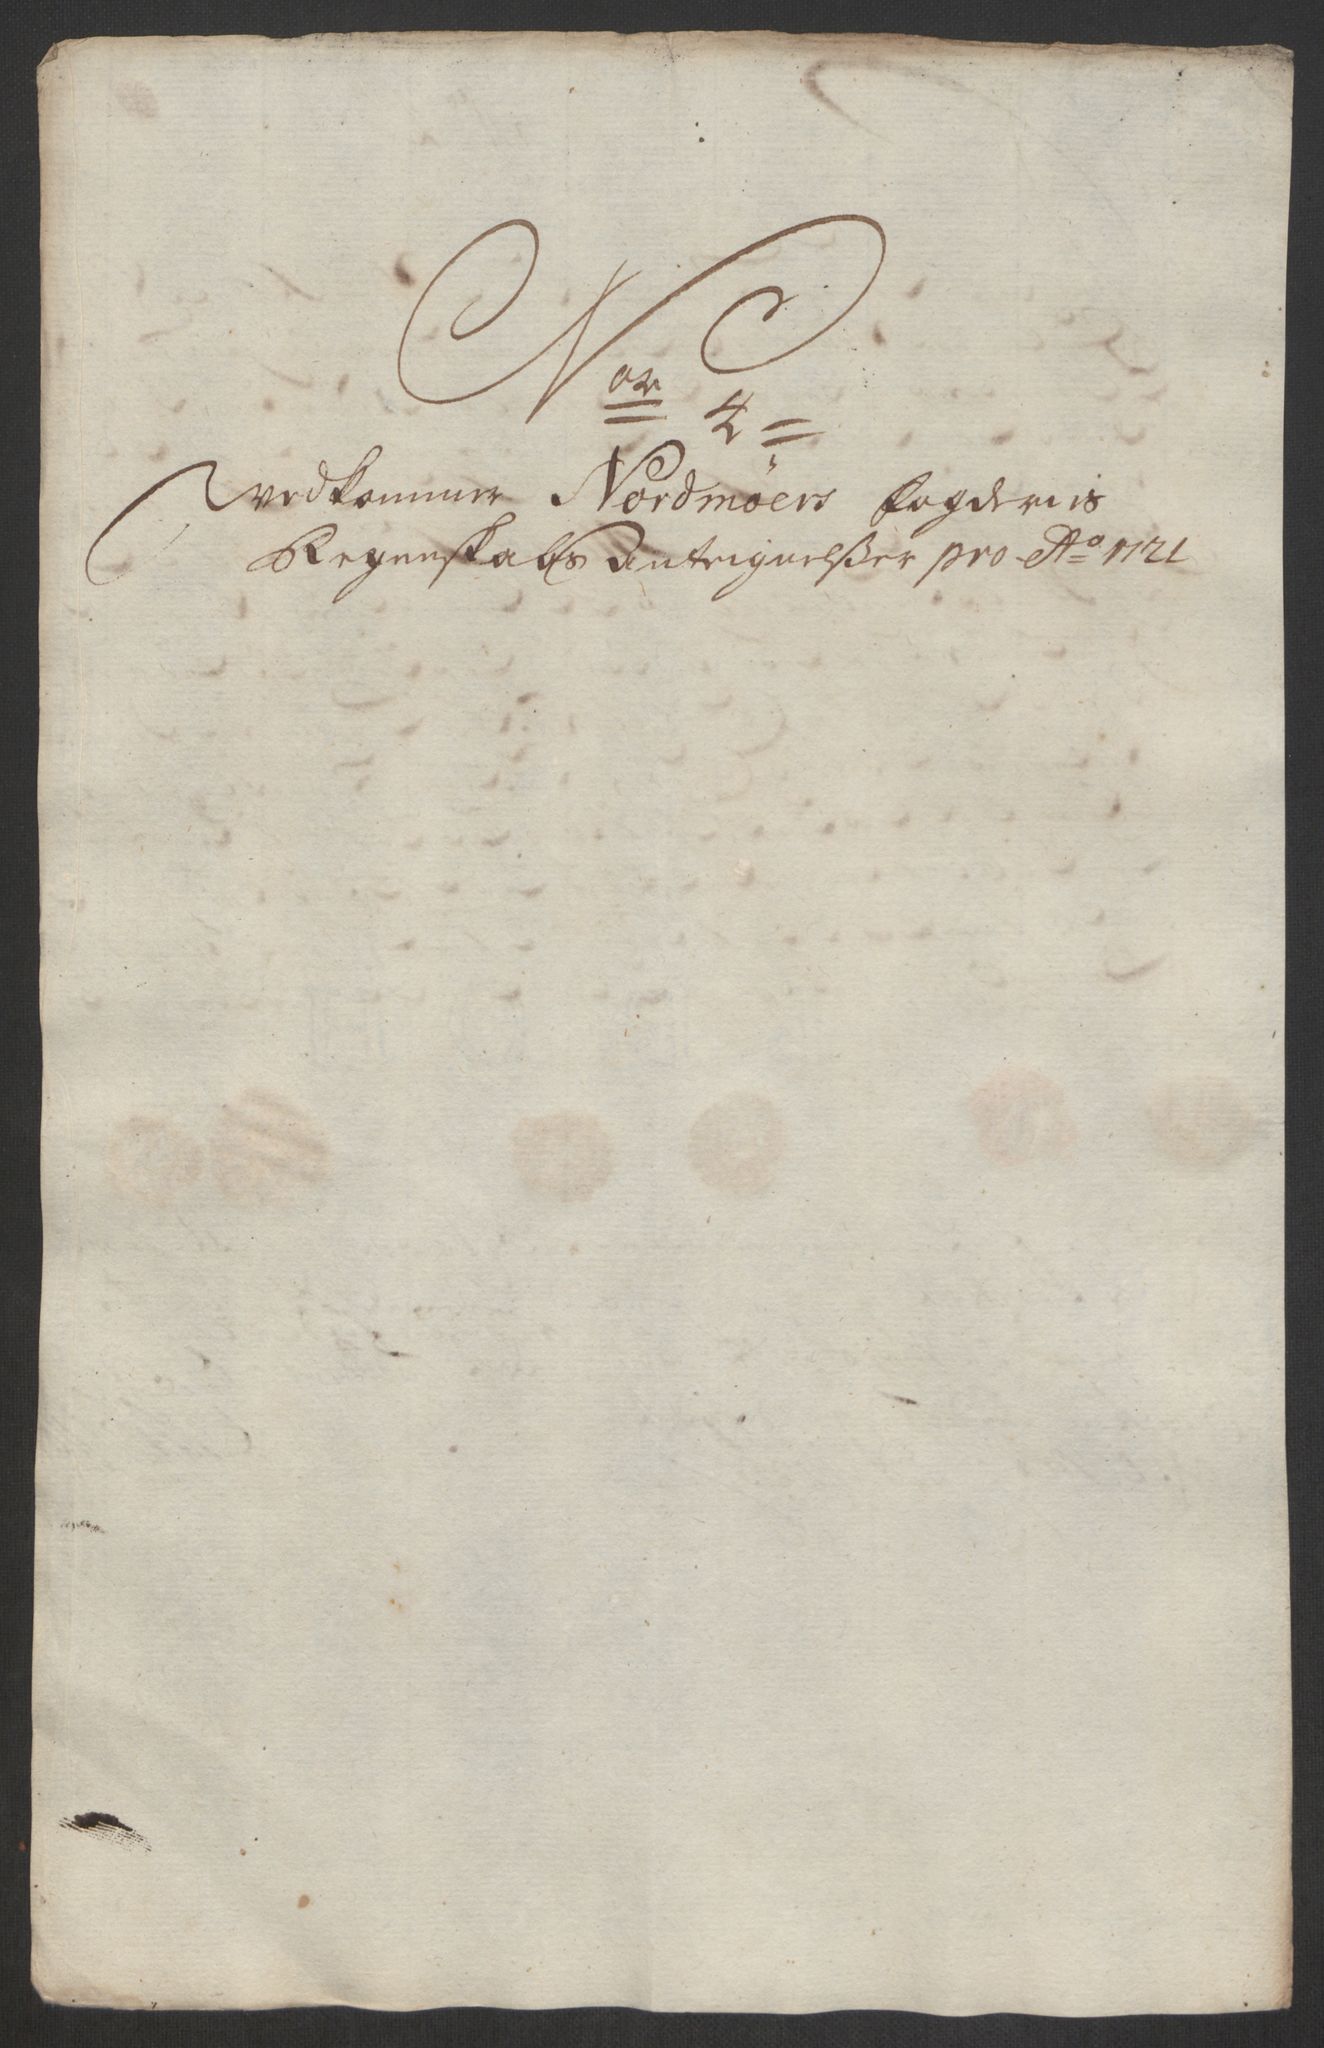 Nor 4
Vedkommer Nordmöers fogderiis
Regenskabs Anteignelßer pro Ao 1721